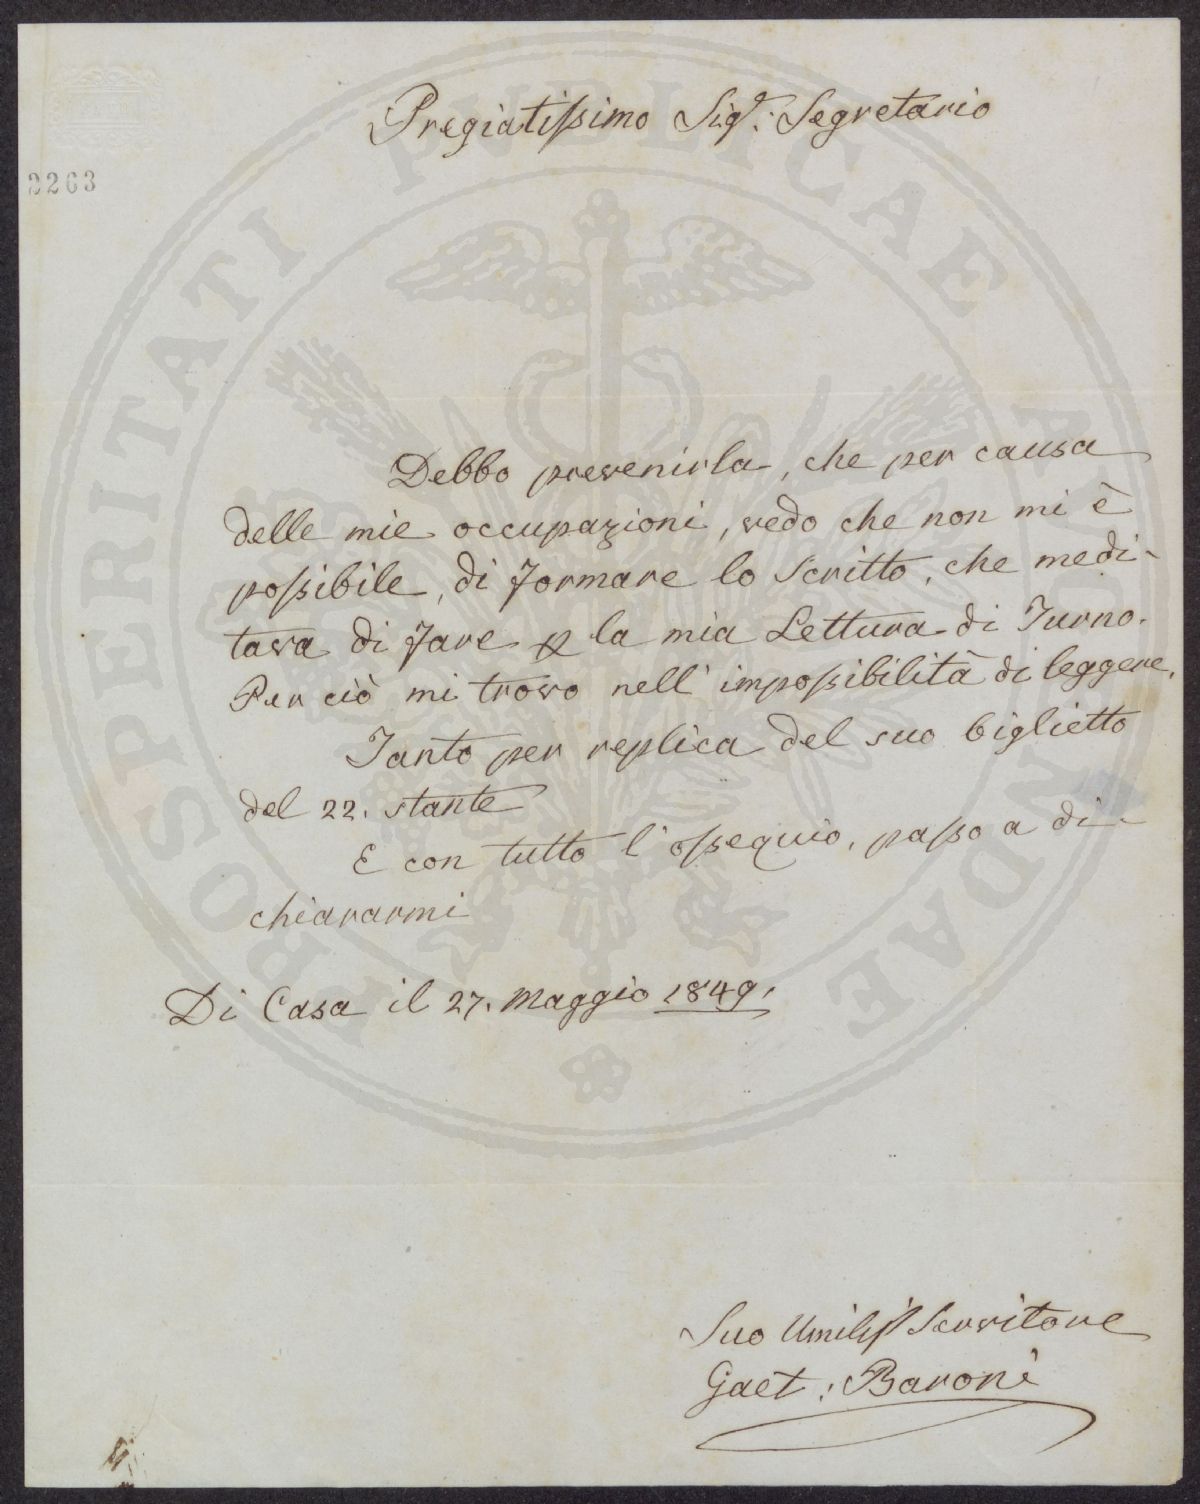 Pregiatissimo Sigr. Segretario
2263
Debbo prevenirla, che per causa
delle mie occupazioni, vedo che non mi è
possibile, di formare lo Scritto, che medi-
tava di fare p la mia Lettura di Turno.
Per ciò mi trovo nell' impossibilità di leggere.
Tanto per replica del suo biglietto
del 22. stante
E con tutto l'ossequio, passo a di-
chiararmi
Di Casa il 27. Maggio 1849.
Suo Umiliss Servitore
Gaet: Baroni
PROSPERITATI PVBLICAE AVGENDAE